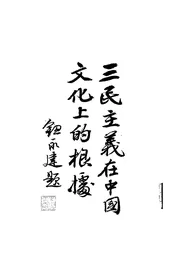 三民主義在中國
文化上的根據
鈕永建題